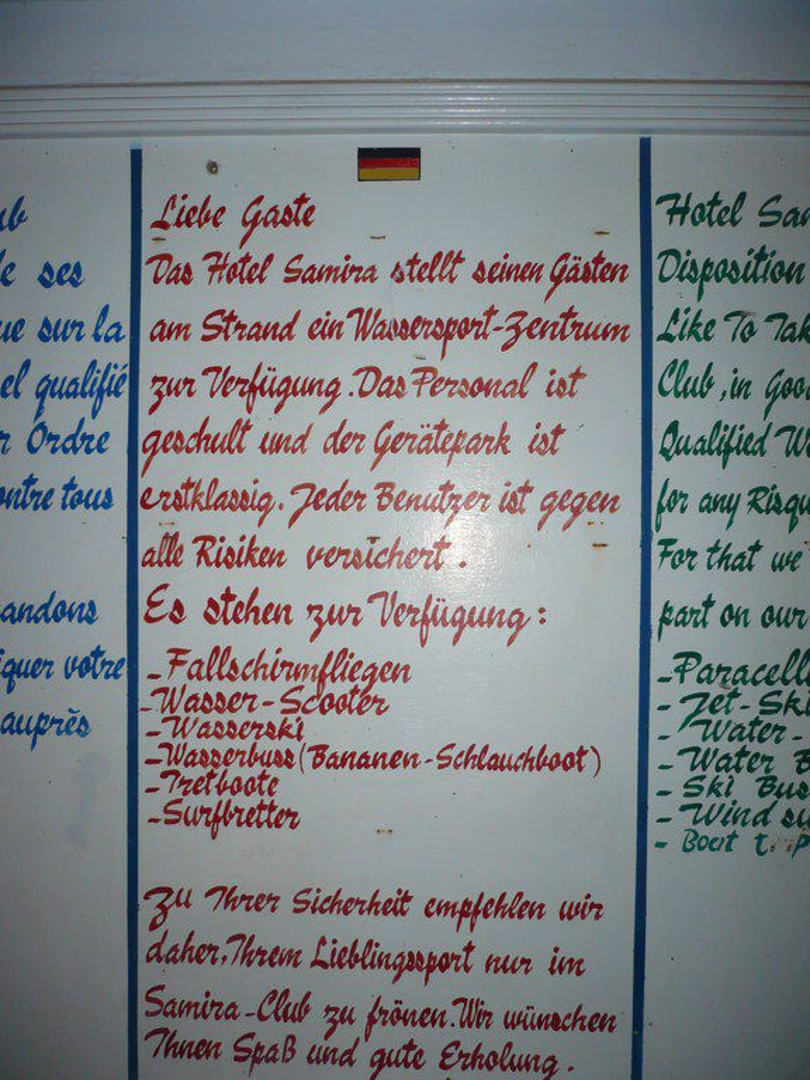 ses
sur la
el qualifié
Ordre
tous
votre
auprès
Liebe Gaste
Das Hotel Samira stellt seinen Gästen
am Strand ein Wassersport-Zentrum
zur Verfügung. Das Personal ist
geschult und der Gerätepark ist
erstklassig. Jeder Benutzer ist gegen
alle Risiken versichert.
Es stehen zur Verfügung:
-Fallschirmfliegen
-Wasser-Scooter
-Wasserski
-Wasserbuss (Bananen-Schlauchboot)
-Tretboote
-Surfbretter
Zu Ihrer Sicherheit empfehlen wir
daher, Ihrem Lieblingssport nur im
Samira-Club zu frönen. Wir wünschen
Ihnen Spaß und gute Erholung.
Hotel
Disposition
Like To
Club, in
Qualified
for any
For that we
part on our
-Paracell
- Jet-Ski
- Water-
- Water
- Ski
- Wind
- Boat